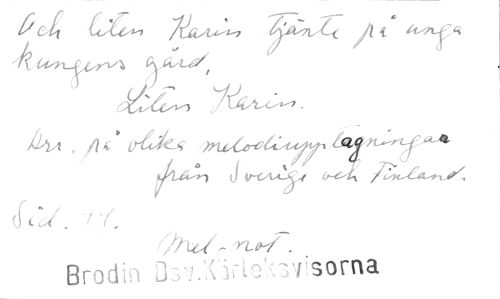 Och liten Karin tjänte på unga
kungens gård,
Liten Karin.
Arr. på olika melodiupptagningar
från Sverige och Finland.
Sid. 14.
Mel-not.
Brodin Dsv.Kärleksvisorna